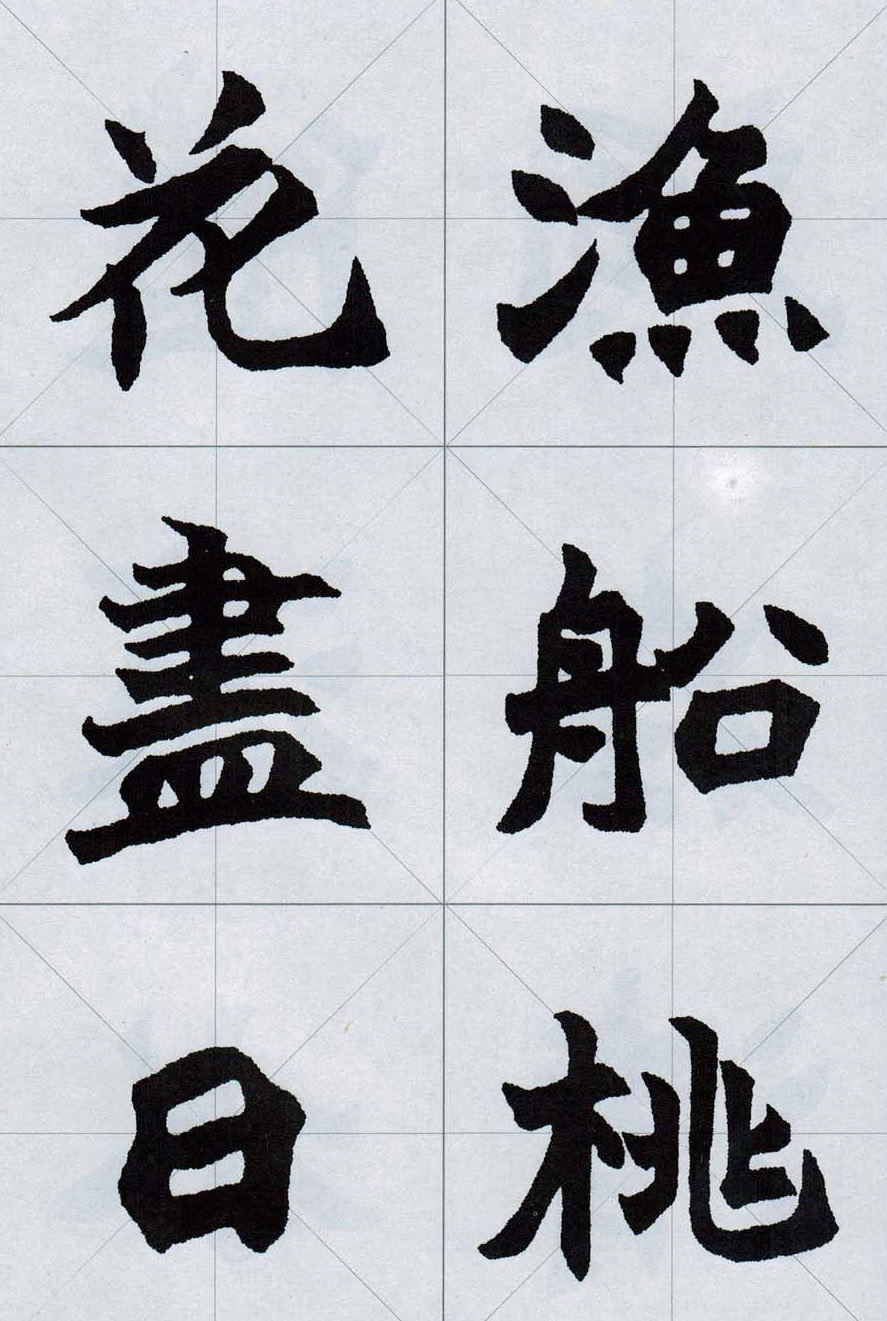 漁船桃
花盡日